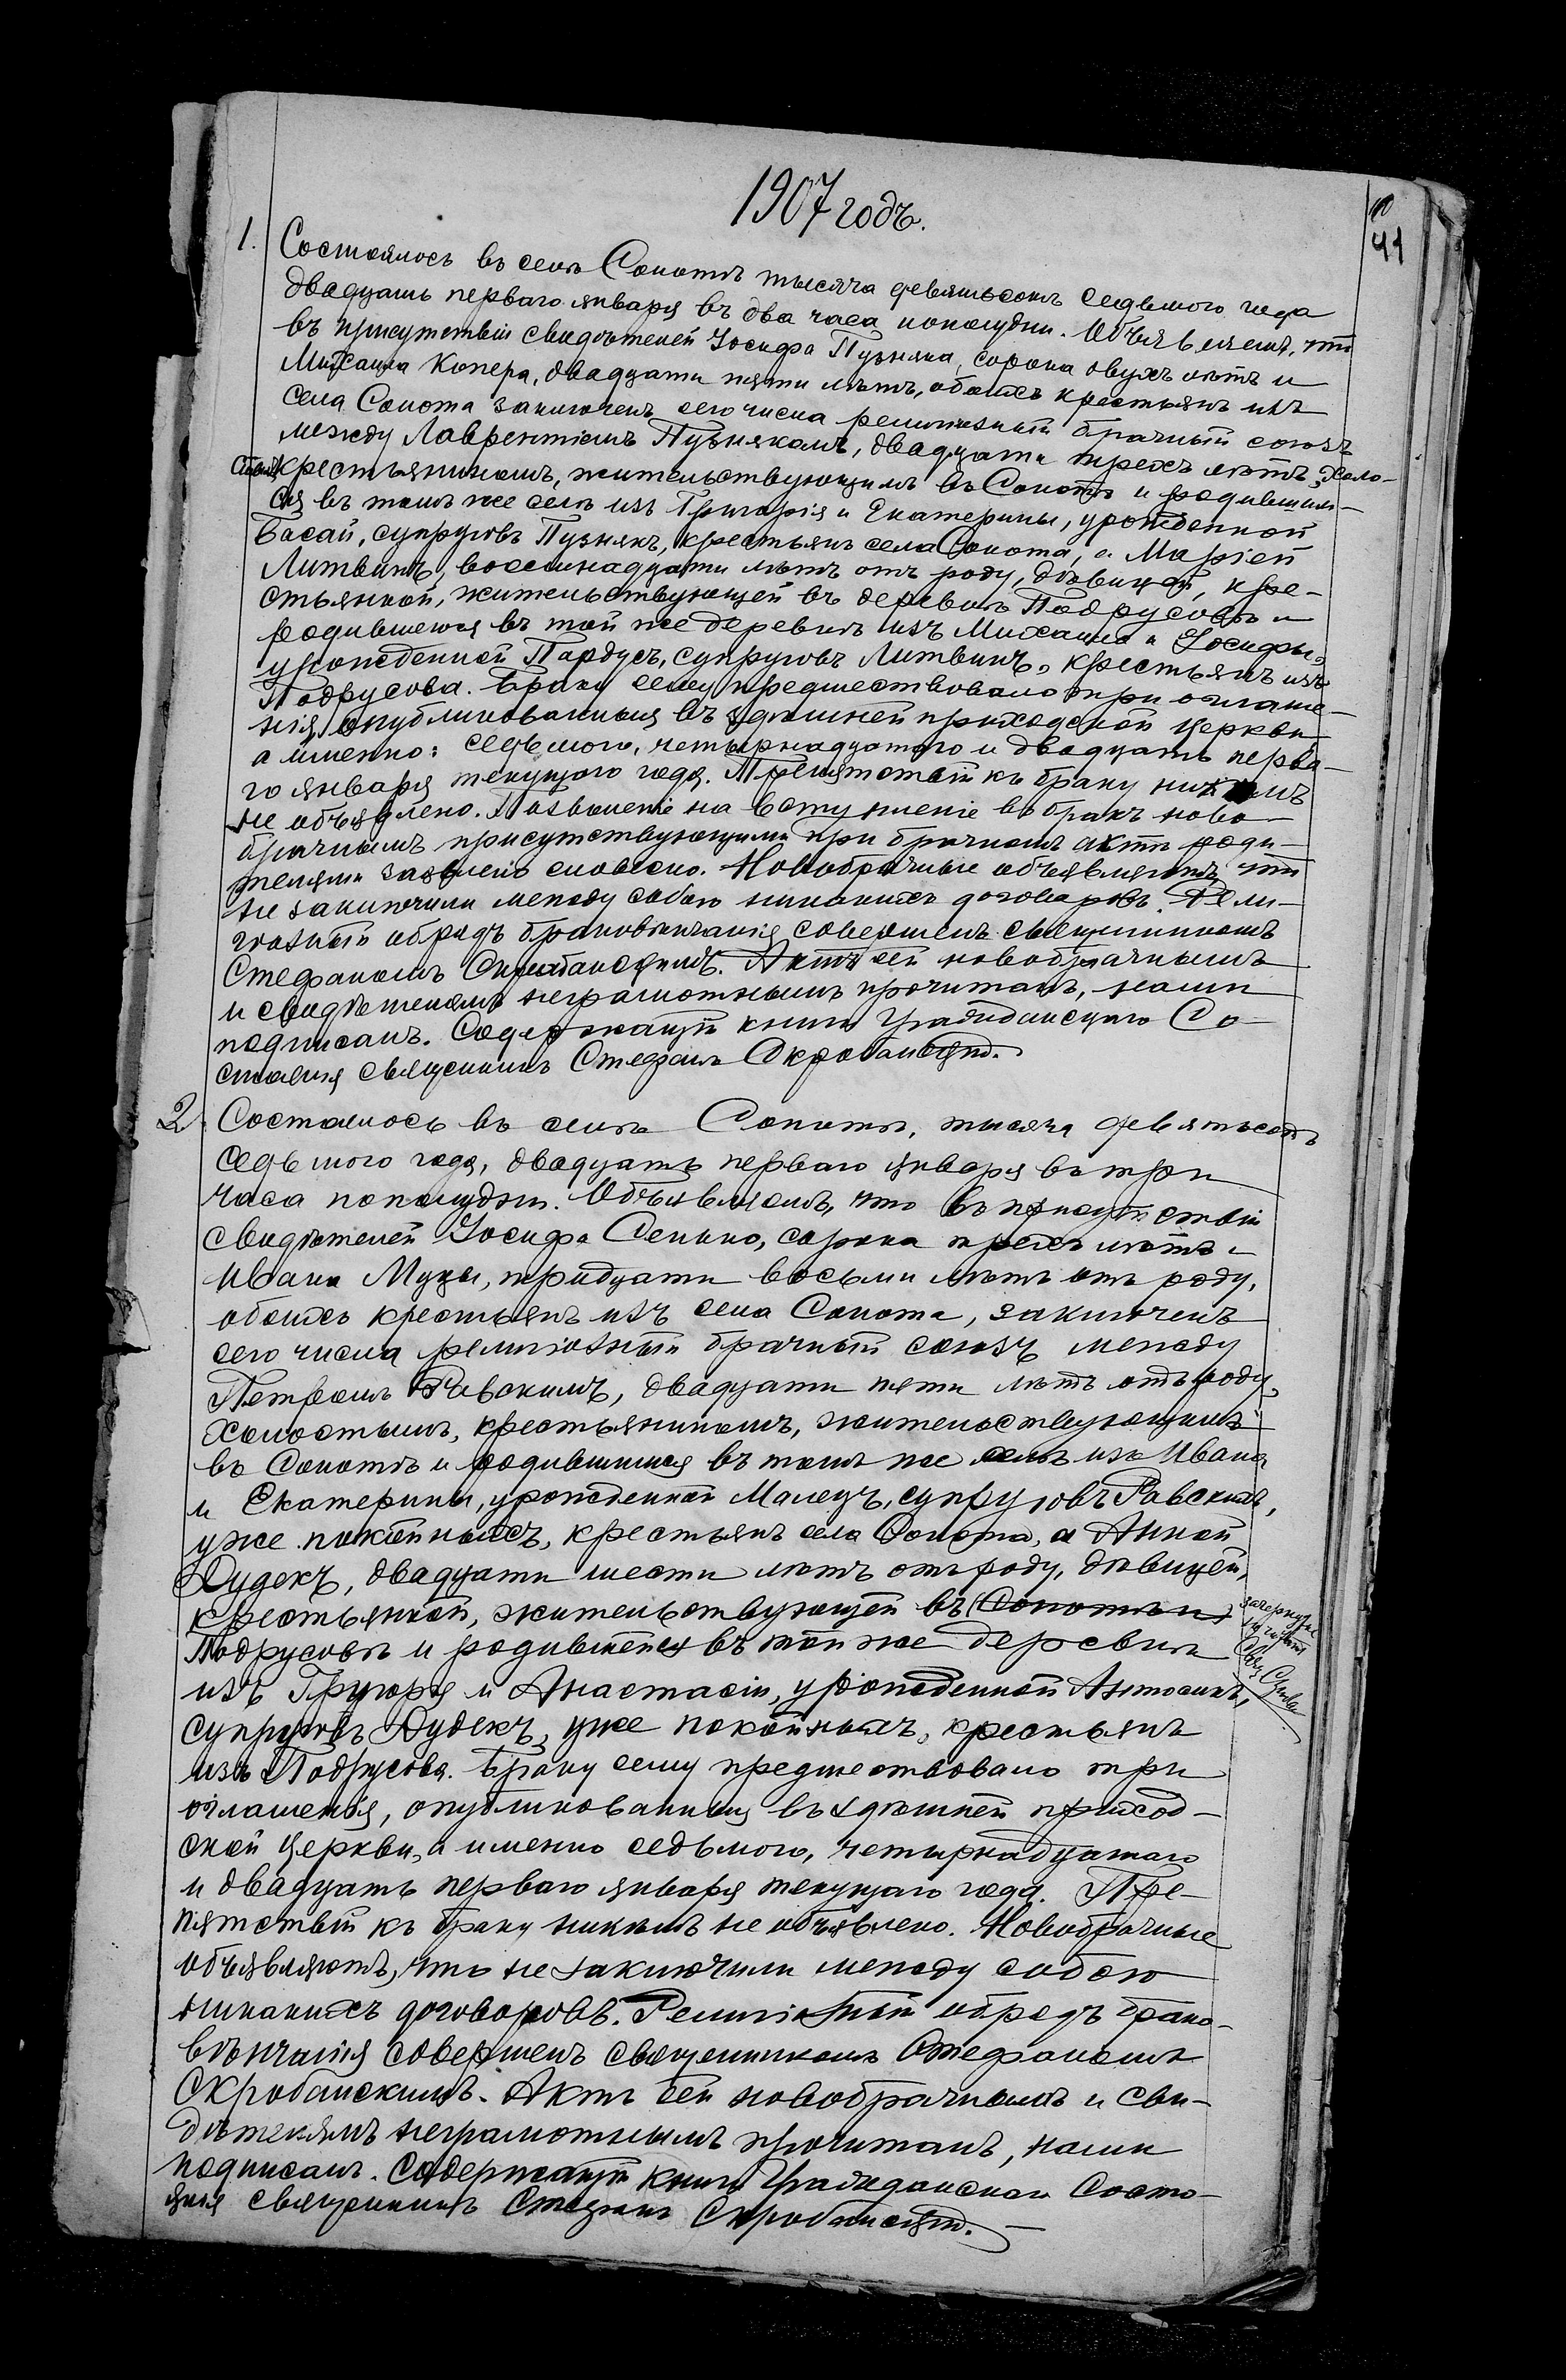 1907 годъ.
41
1. Состоялось въ селѣ Сопотѣ тысяча девятьсотъ седьмого года
двадцать перваго января въ два часа пополудни. Объявляемъ, что
въ присутствіи свидѣтелей Іосифа Пузняка, сорока двухъ лѣтъ и
Михаила Копера, двадцати пяти лѣтъ, обоихъ крестьянъ изъ
села Сопота заключенъ сего числа религіозный брачный союзъ
между Лаврентіемъ Пузнякомъ, двадцати трехъ лѣтъ, холо-
стымъ крестьяниномъ, жительствующимъ въ Сопотѣ и родившим-
ся въ томъ же селѣ изъ Григорія и Екатерины, урожденной
Басай, супруговъ Пузнякъ, крестьянъ села Сопота, а Маріей
Литвинъ, восемнадцати лѣтъ отъ роду, дѣвицей, кре-
стьянкой, жительствующей въ деревнѣ Подрусовѣ и
родившейся въ той же деревнѣ изъ Михаила и Іосифы,
урожденной Пардусъ, супруговъ Литвинъ, крестьянъ изъ
Подрусова. Браку сему предшествовало три оглаше-
нія, опубликованныя въ здѣшней приходской церкви
а именно: седьмого, четырнадцатого и двадцать перва-
го января текущаго года. Препятствій къ браку никѣмъ
не объявлено. Позволеніе на вступленіе въ бракъ ново-
брачнымъ присутствующими при брачномъ актѣ роди-
телями заявлено словесно. Новобрачные объявляютъ, что
не заключили между собою никакихъ договоровъ. Рели-
гіозный обрядъ бракосочетанія совершенъ священникомъ
Стефаномъ Скробанскимъ. Актъ сей новобрачнымъ
и свидѣтелямъ неграмотнымъ прочитанъ, нами
подписанъ. Содержащій книги Гражданскаго Со-
стоянія священникъ Стефанъ Скробанскій.
2. Состоялось въ селѣ Сопотѣ, тысяча девятьсотъ
седьмого года, двадцать перваго января въ три
часа пополудни. Объявляемъ, что въ присутствіи
свидѣтелей Іосифа Сенько, сорока трехъ лѣтъ и
Ивана Музы, тридцати восьми лѣтъ отъ роду,
обоихъ крестьянъ изъ села Сопота, заключенъ
сего числа религіозный брачный союзъ между
Петромъ Равскимъ, двадцати пяти лѣтъ отъ роду,
холостымъ, крестьяниномъ, жительствующимъ
въ Сопотѣ и родившимся въ томъ же селѣ изъ Ивана
и Екатерины, урожденной Малецъ, супруговъ Равскихъ,
уже покойныхъ, крестьянъ села Сопота, а Анной
Дудекъ, двадцати шести лѣтъ отъ роду, дѣвицей,
крестьянкой, жительствующей въ (Сопотѣ и)
Подрусовѣ и родившейся въ той же деревнѣ
изъ Григорія и Анастасіи, урожденной Антошкъ,
супруговъ Дудекъ, уже покойныхъ, крестьянъ
изъ Подрусова. Браку сему предшествовало три
оглашенія, опубликованныя въ здѣшней приход-
ской церкви, а именно седьмого, четырнадцатаго
и двадцать перваго января текущаго года. Пре-
пятствій къ браку никѣмъ не объявлено. Новобрачные
объявляютъ, что не заключили между собою
никакихъ договоровъ. Религіозный обрядъ брако-
вѣнчанія совершенъ священникомъ Стефаномъ
Скробанскимъ. Актъ сей новобрачнымъ и сви-
дѣтелямъ неграмотнымъ прочитанъ, нами
подписанъ. Содержащій книги Гражданскаго Состо-
янія священникъ Стефанъ Скробанскій.